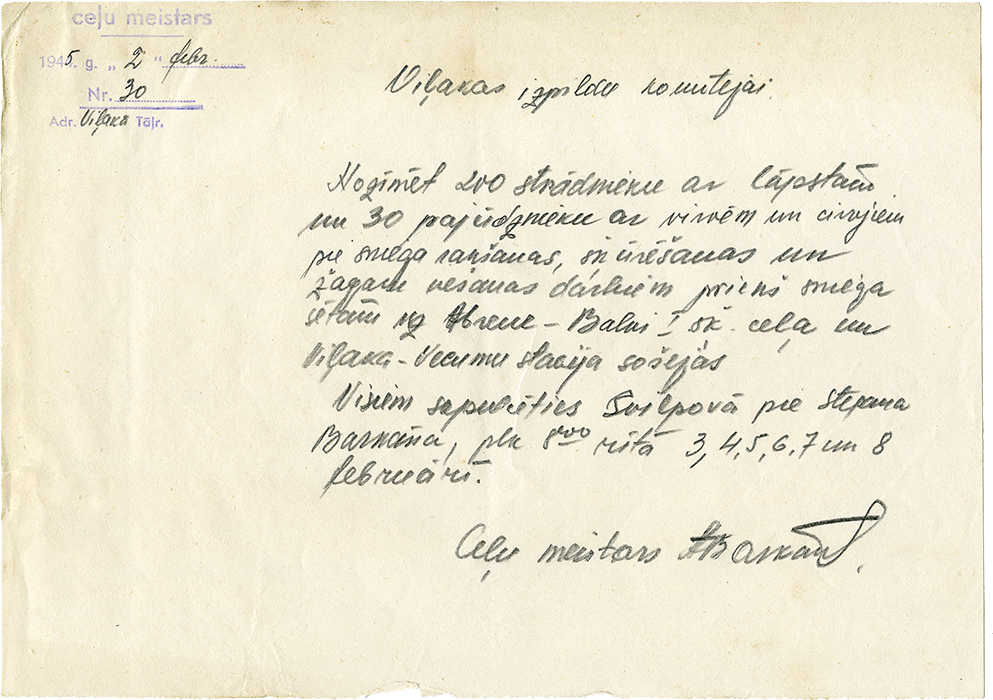 ceļu meistars
1945. g. „ 2 " febr.
Nr. 30
Adr. Viļakā Tāļr.
Viļakas izpildu komitejai.
Nozīmēt 200 strādnieku ar lāpstām
un 30 pajūdznieku ar virvēm un cirvjiem
pie sniega rakšanas, šķūrēšanas un
žagaru vešanas darbiem priekš sniega
sētām uz Abrene – Balvi I šķ. ceļa un
Viļaka – Vecumu stacija šosejas
Visiem sapulcēties Svilpovā pie Stepana
Barkāna, plk 8 00 rītā 3, 4, 5, 6, 7 un 8
februārī.
Ceļu meistars Barkans